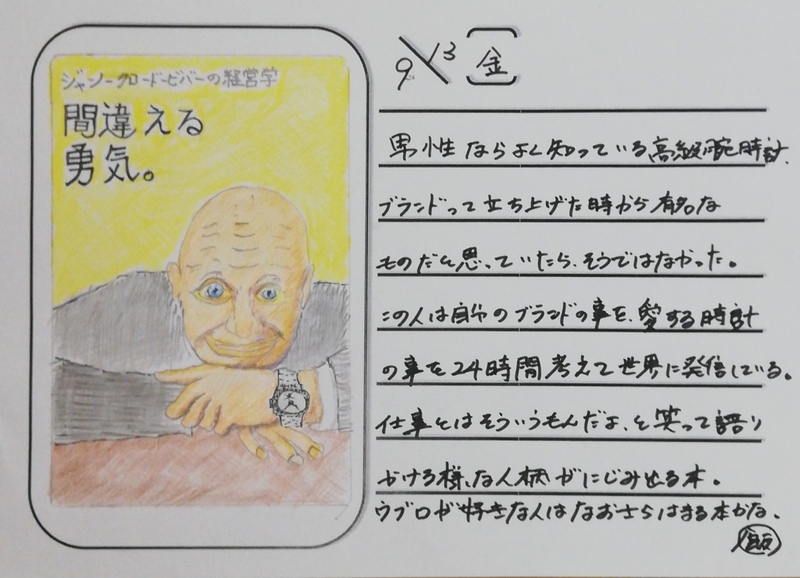 ジャン-クロード・ビバーの経営学
間違える
勇気。
9/13 [金]
男性ならよく知っている高級腕時計
ブランドって立ち上げた時から有名な
ものだと思っていたら、そうではなかった。
この人は自分のブランドの事を、愛する時計
の事を24時間考えて世界に発信している。
仕事とはそういうもんだよ、と笑って語り
かける様な人柄がにじみ出る本。
ウブロが好きな人はなおさらはまる本かな。
飯